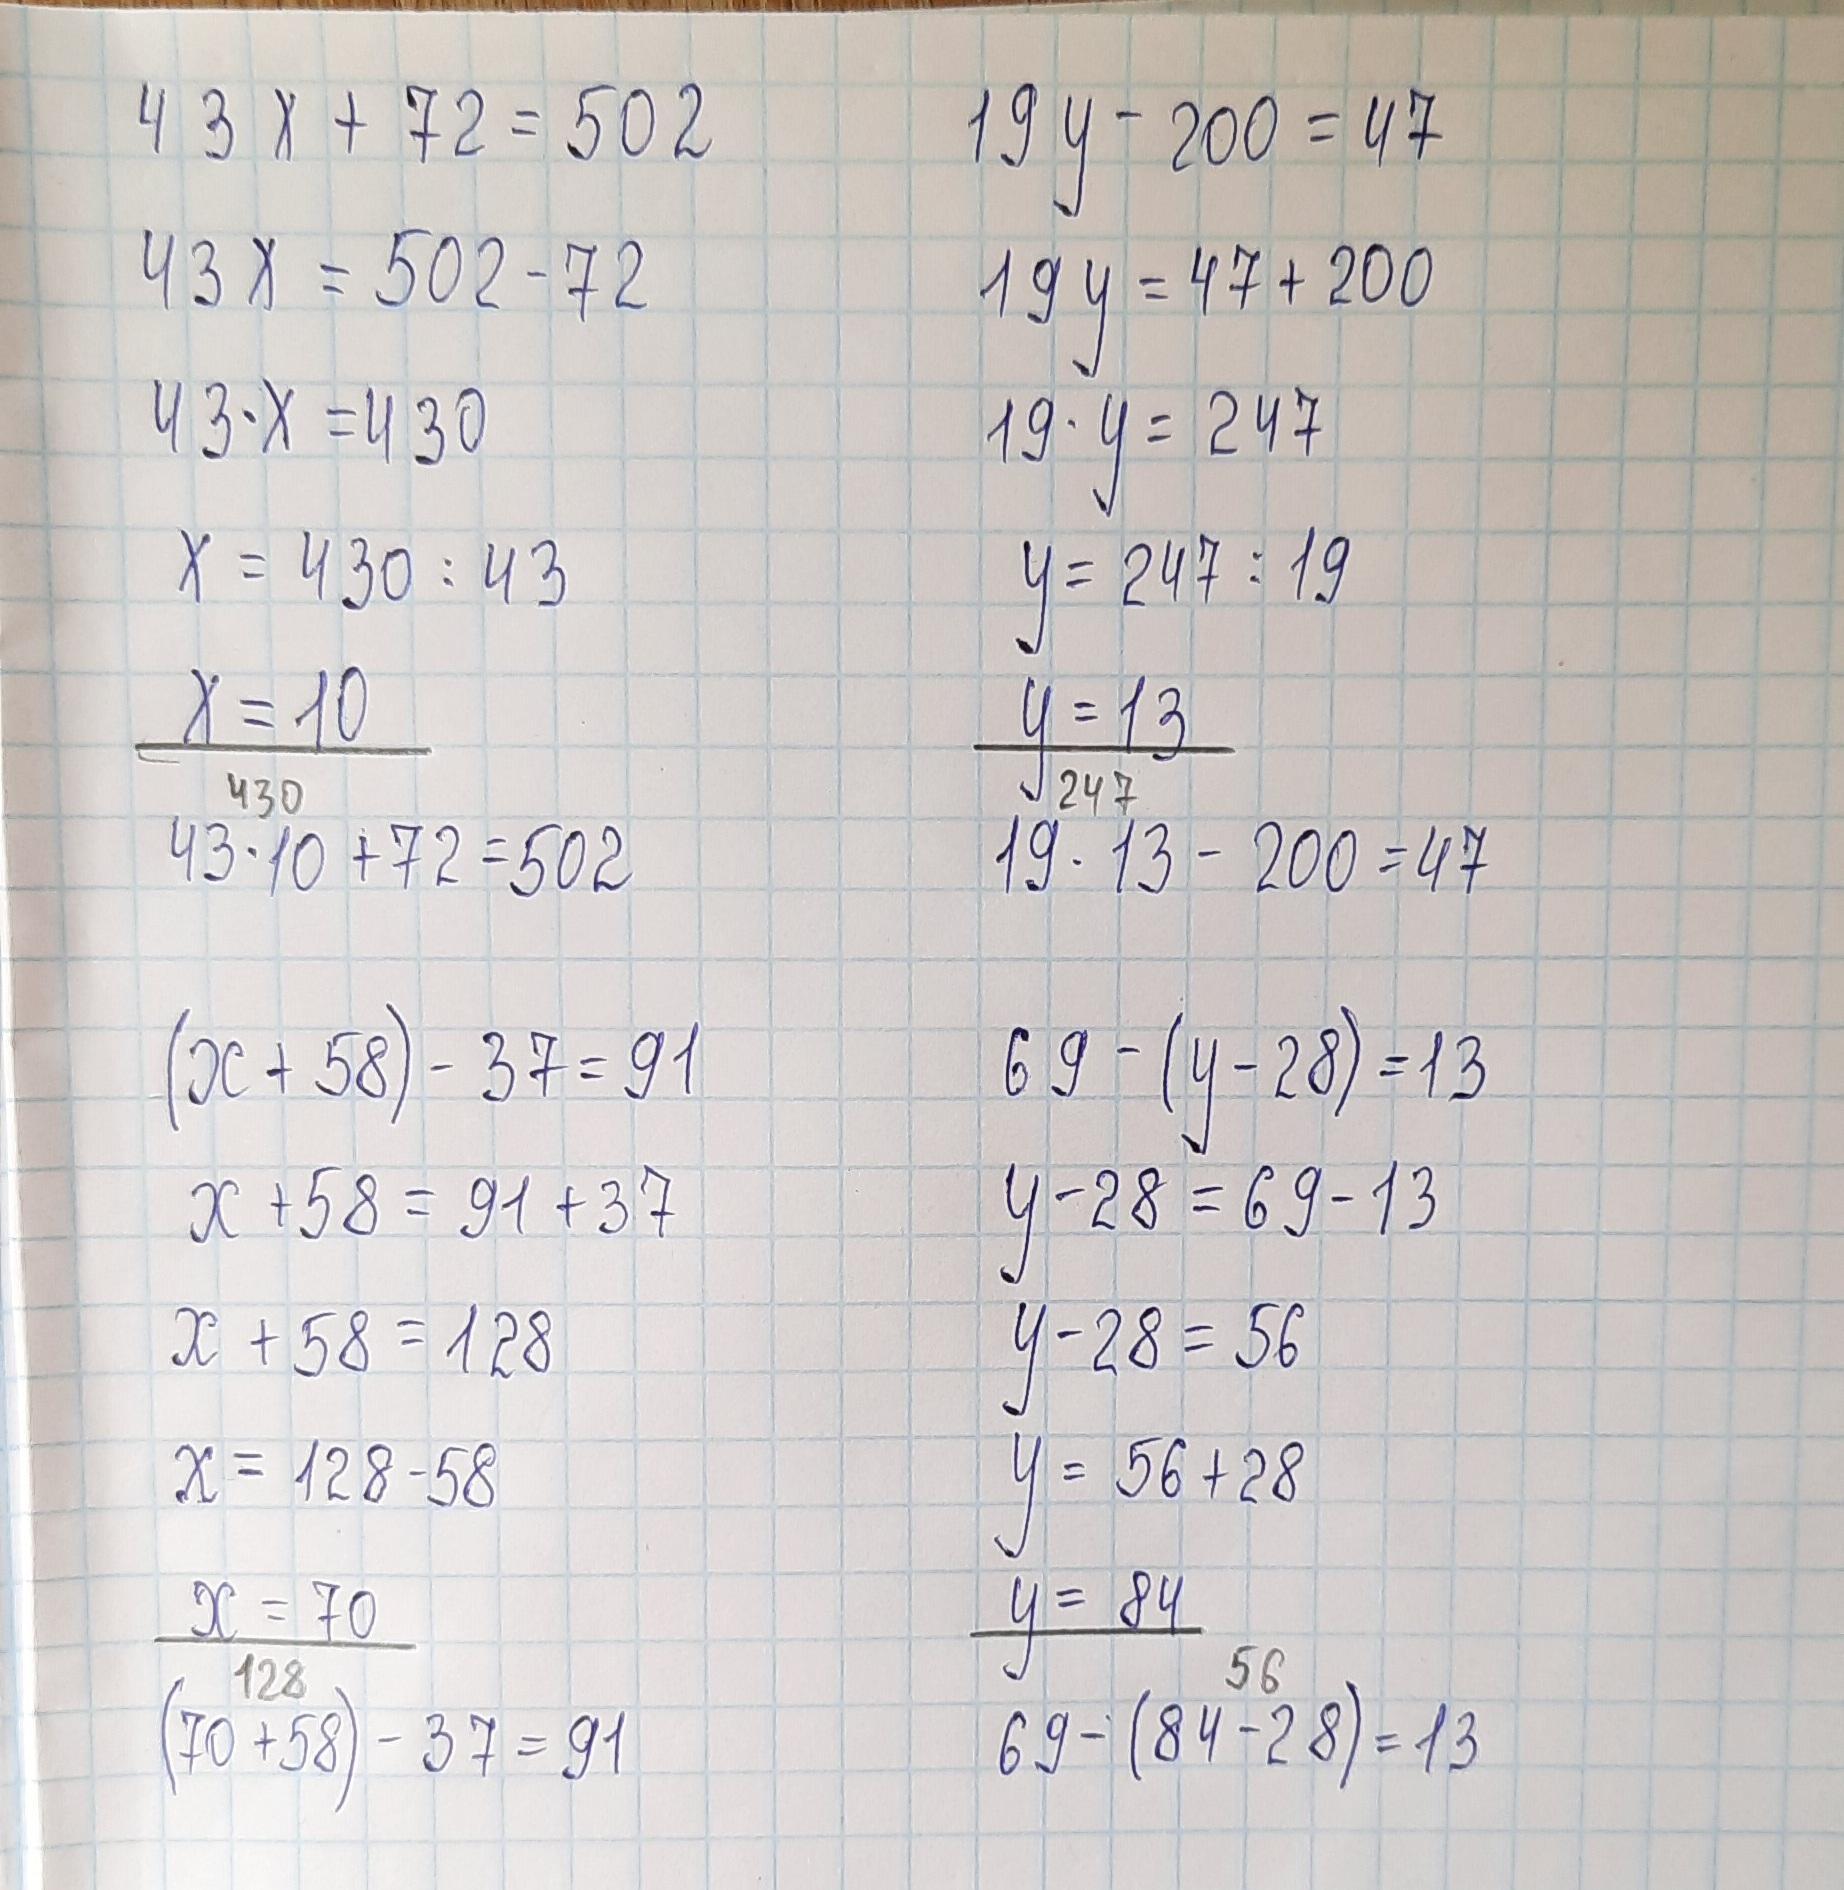 43x + 72 = 502
43x = 502 - 72
43·x = 430
x = 430 : 43
x = 10
430
43·10 + 72 = 502
19y - 200 = 47
19y = 47 + 200
19·y = 247
y = 247 : 19
y = 13
247
19·13 - 200 = 47
(x + 58) - 37 = 91
x + 58 = 91 + 37
x + 58 = 128
x = 128 - 58
x = 70
128
(70 + 58) - 37 = 91
69 - (y - 28) = 13
y - 28 = 69 - 13
y - 28 = 56
y = 56 + 28
y = 84
56
69 - (84 - 28) = 13